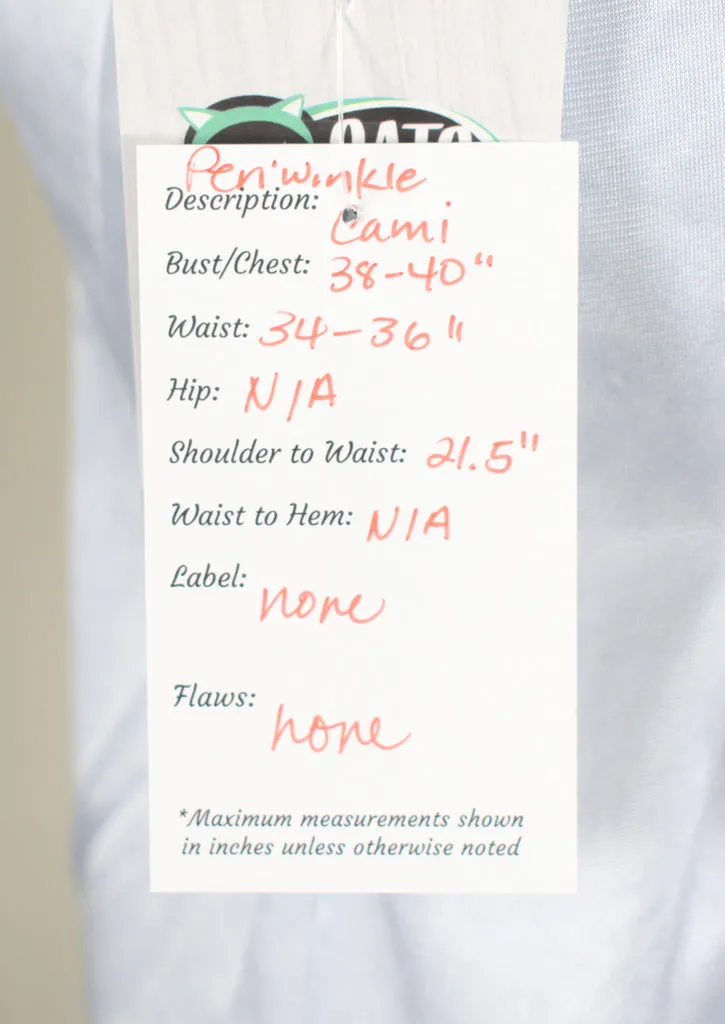 Periwinkle
Description: Cami
Bust/Chest: 38-40"
Waist: 34-36"
Hip: N/A
Shoulder to Waist: 21.5"
Waist to Hem: N/A
Label: none
Flaws: none
*Maximum measurements shown
in inches unless otherwise noted